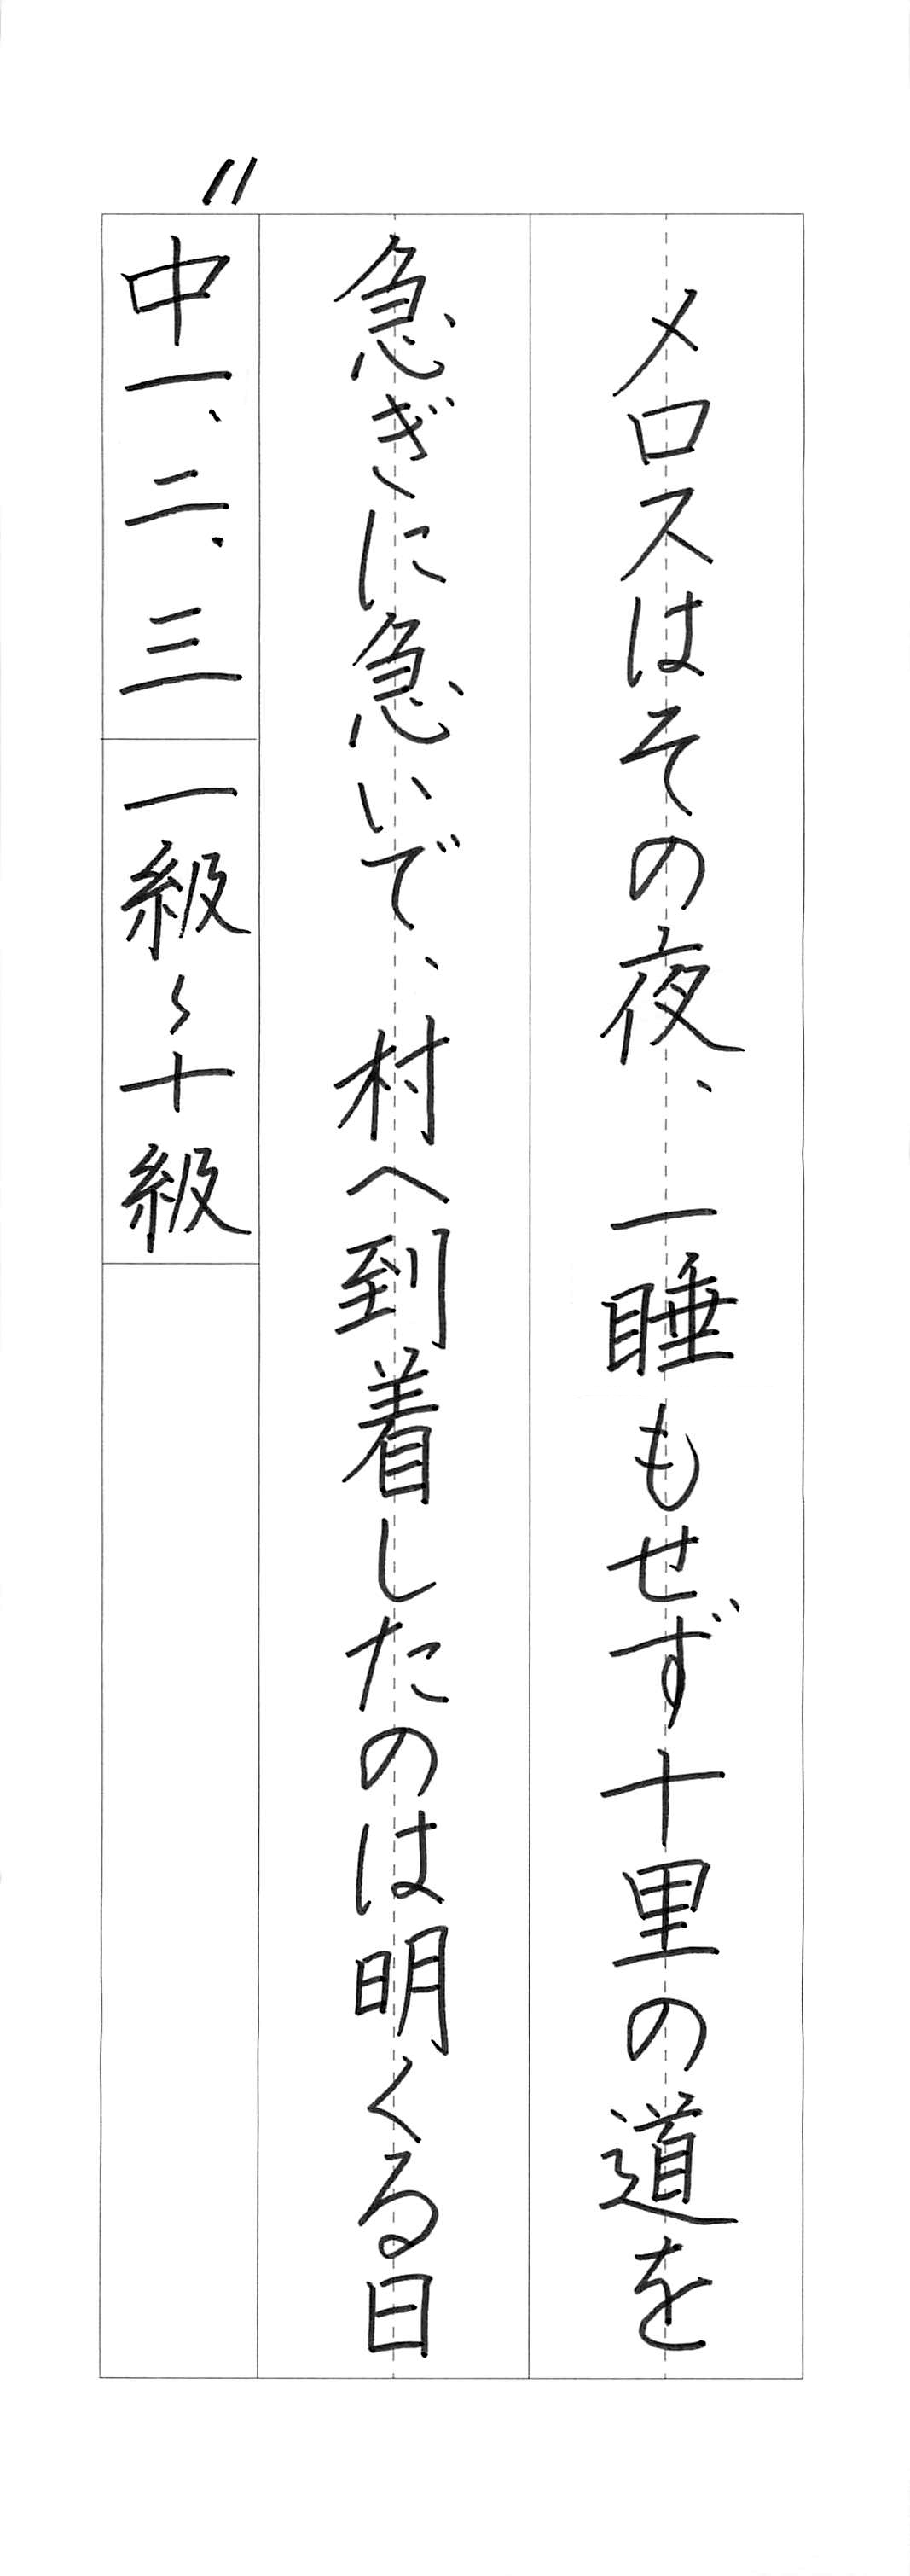 メロスはその夜、一睡もせず十里の道を
急ぎに急いで、村へ到着したのは明くる日
11
中一、二、三
一級〜十級